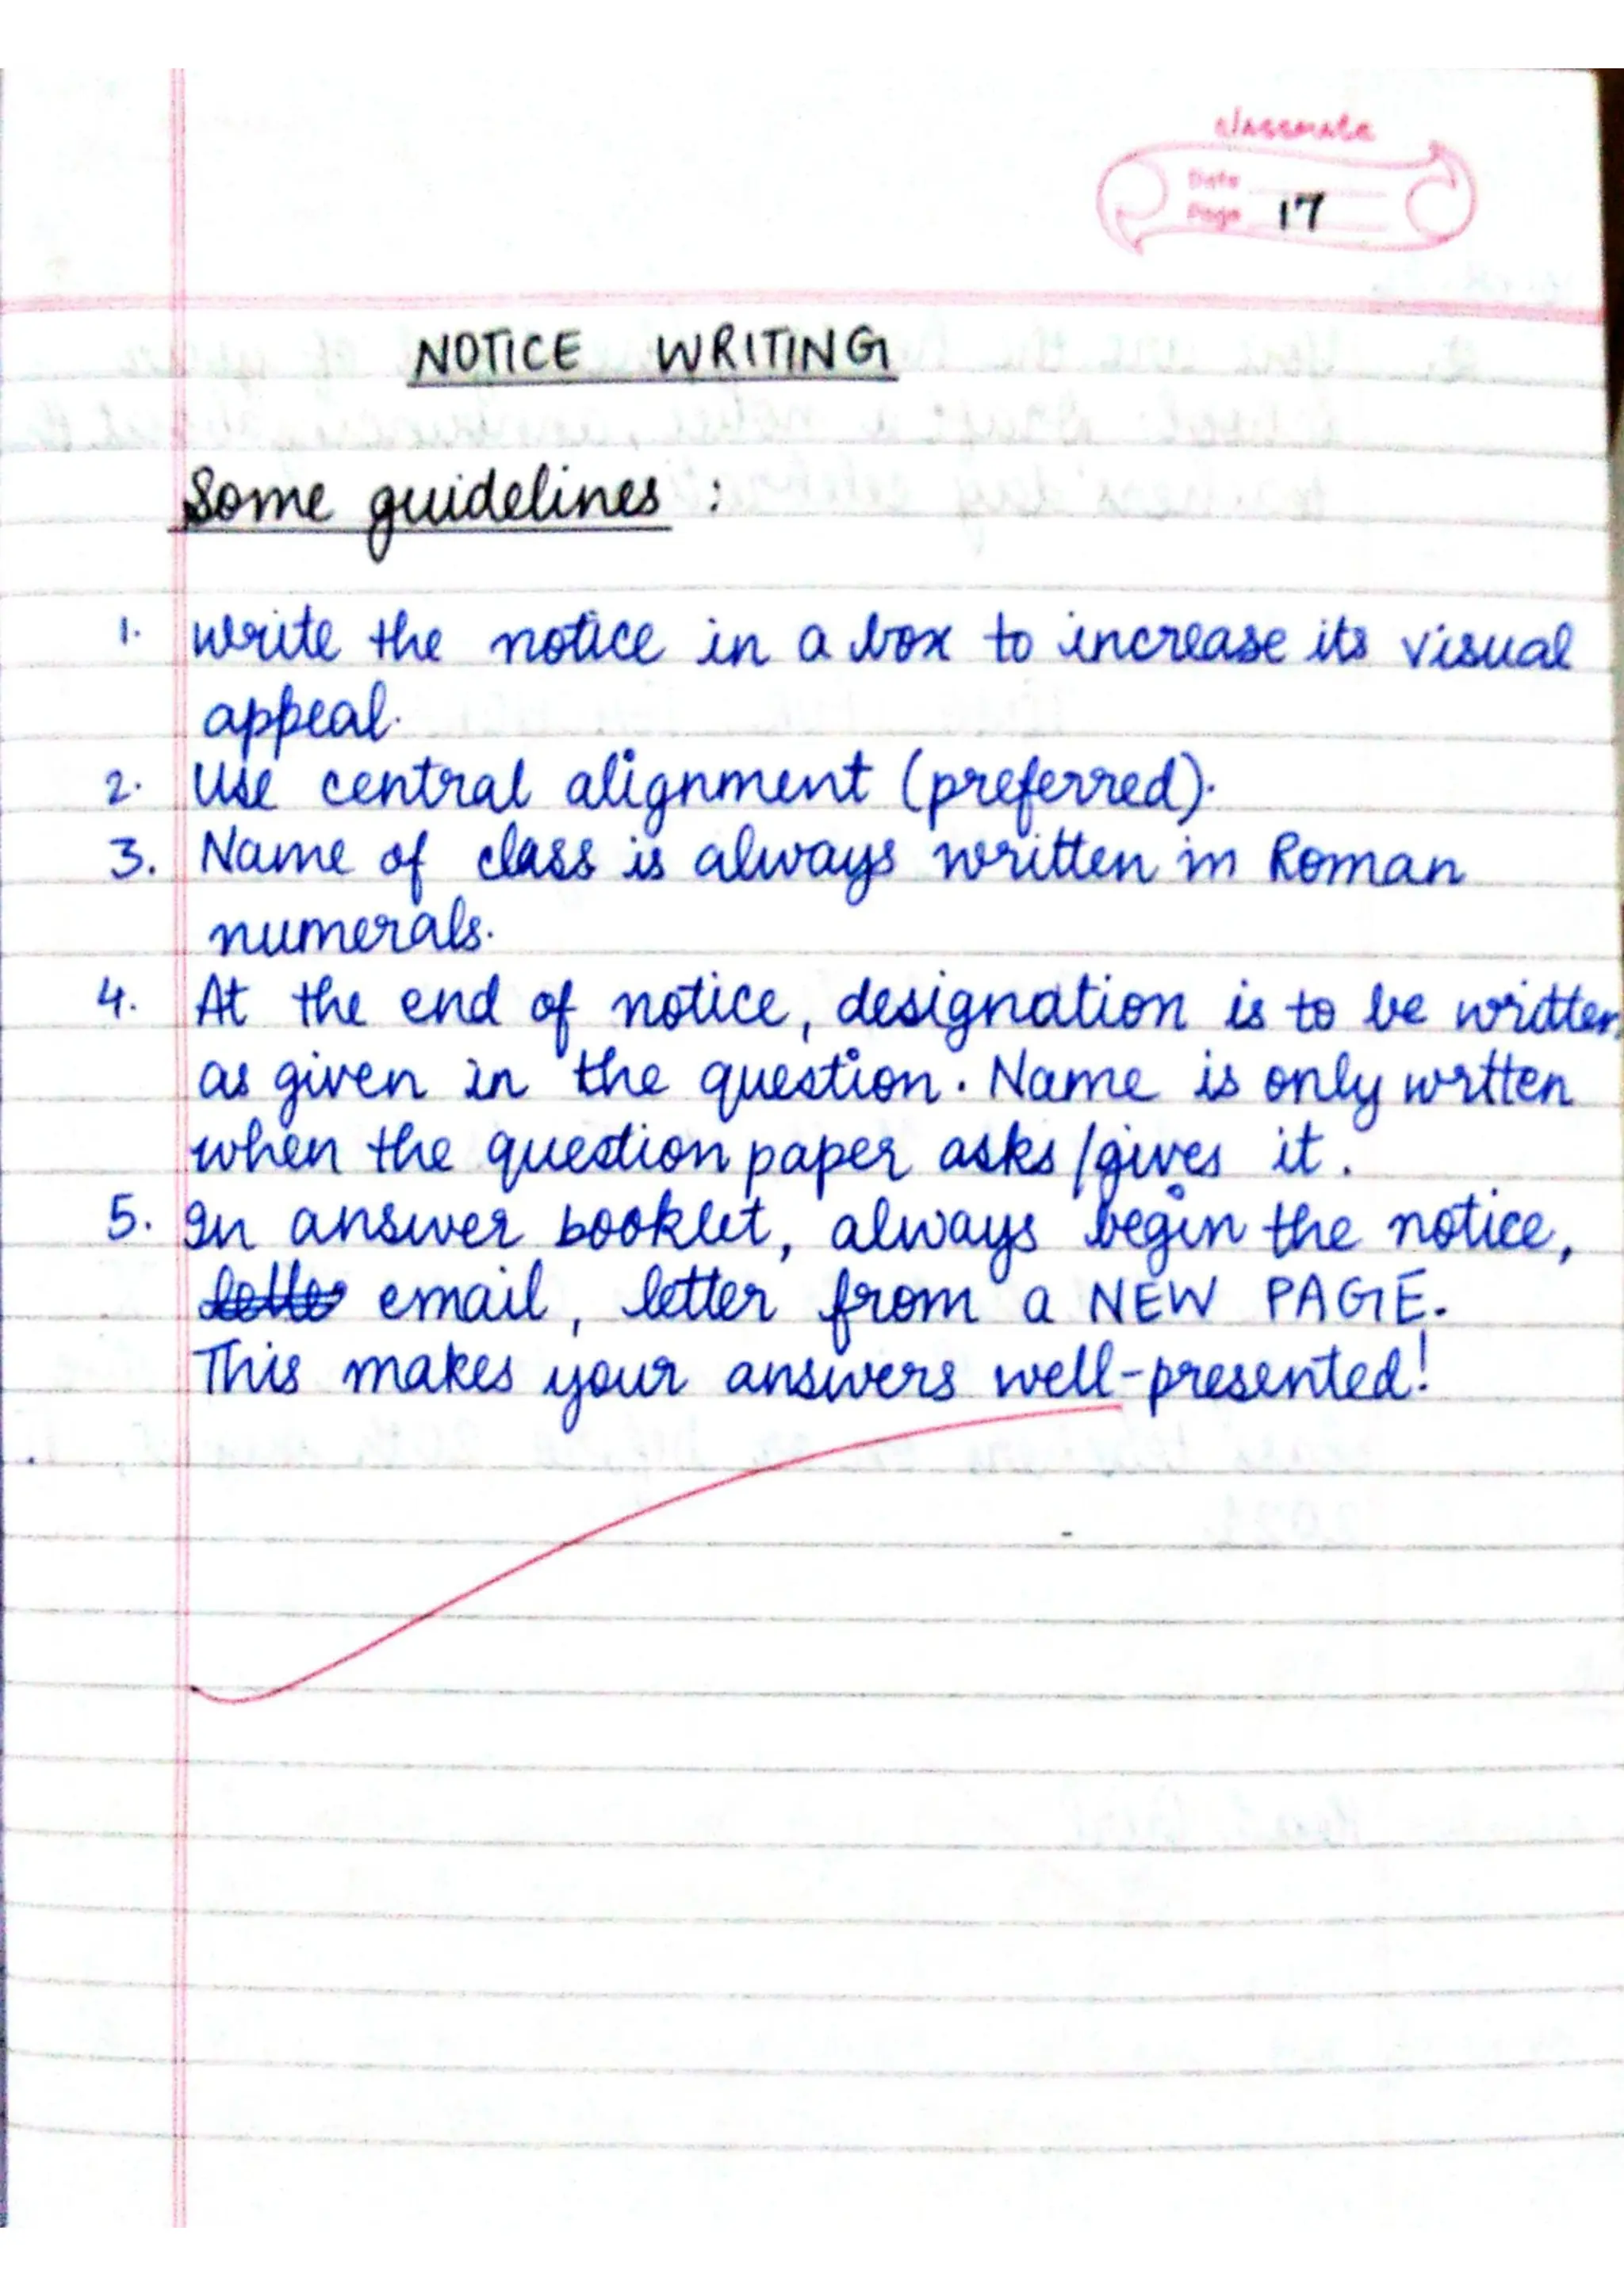 classmate
Date
Page 17
NOTICE WRITING
Some guidelines :
1. Write the notice in a box to increase its visual
appeal.
2. Use central alignment (preferred).
3. Name of class is always written in Roman
numerals.
4. At the end of notice, designation is to be written
as given in the question. Name is only wrtten
when the question paper asks/gives it.
5. In answer booklet, always begin the notice,
email, letter from a NEW PAGE.
This makes your answers well-presented!